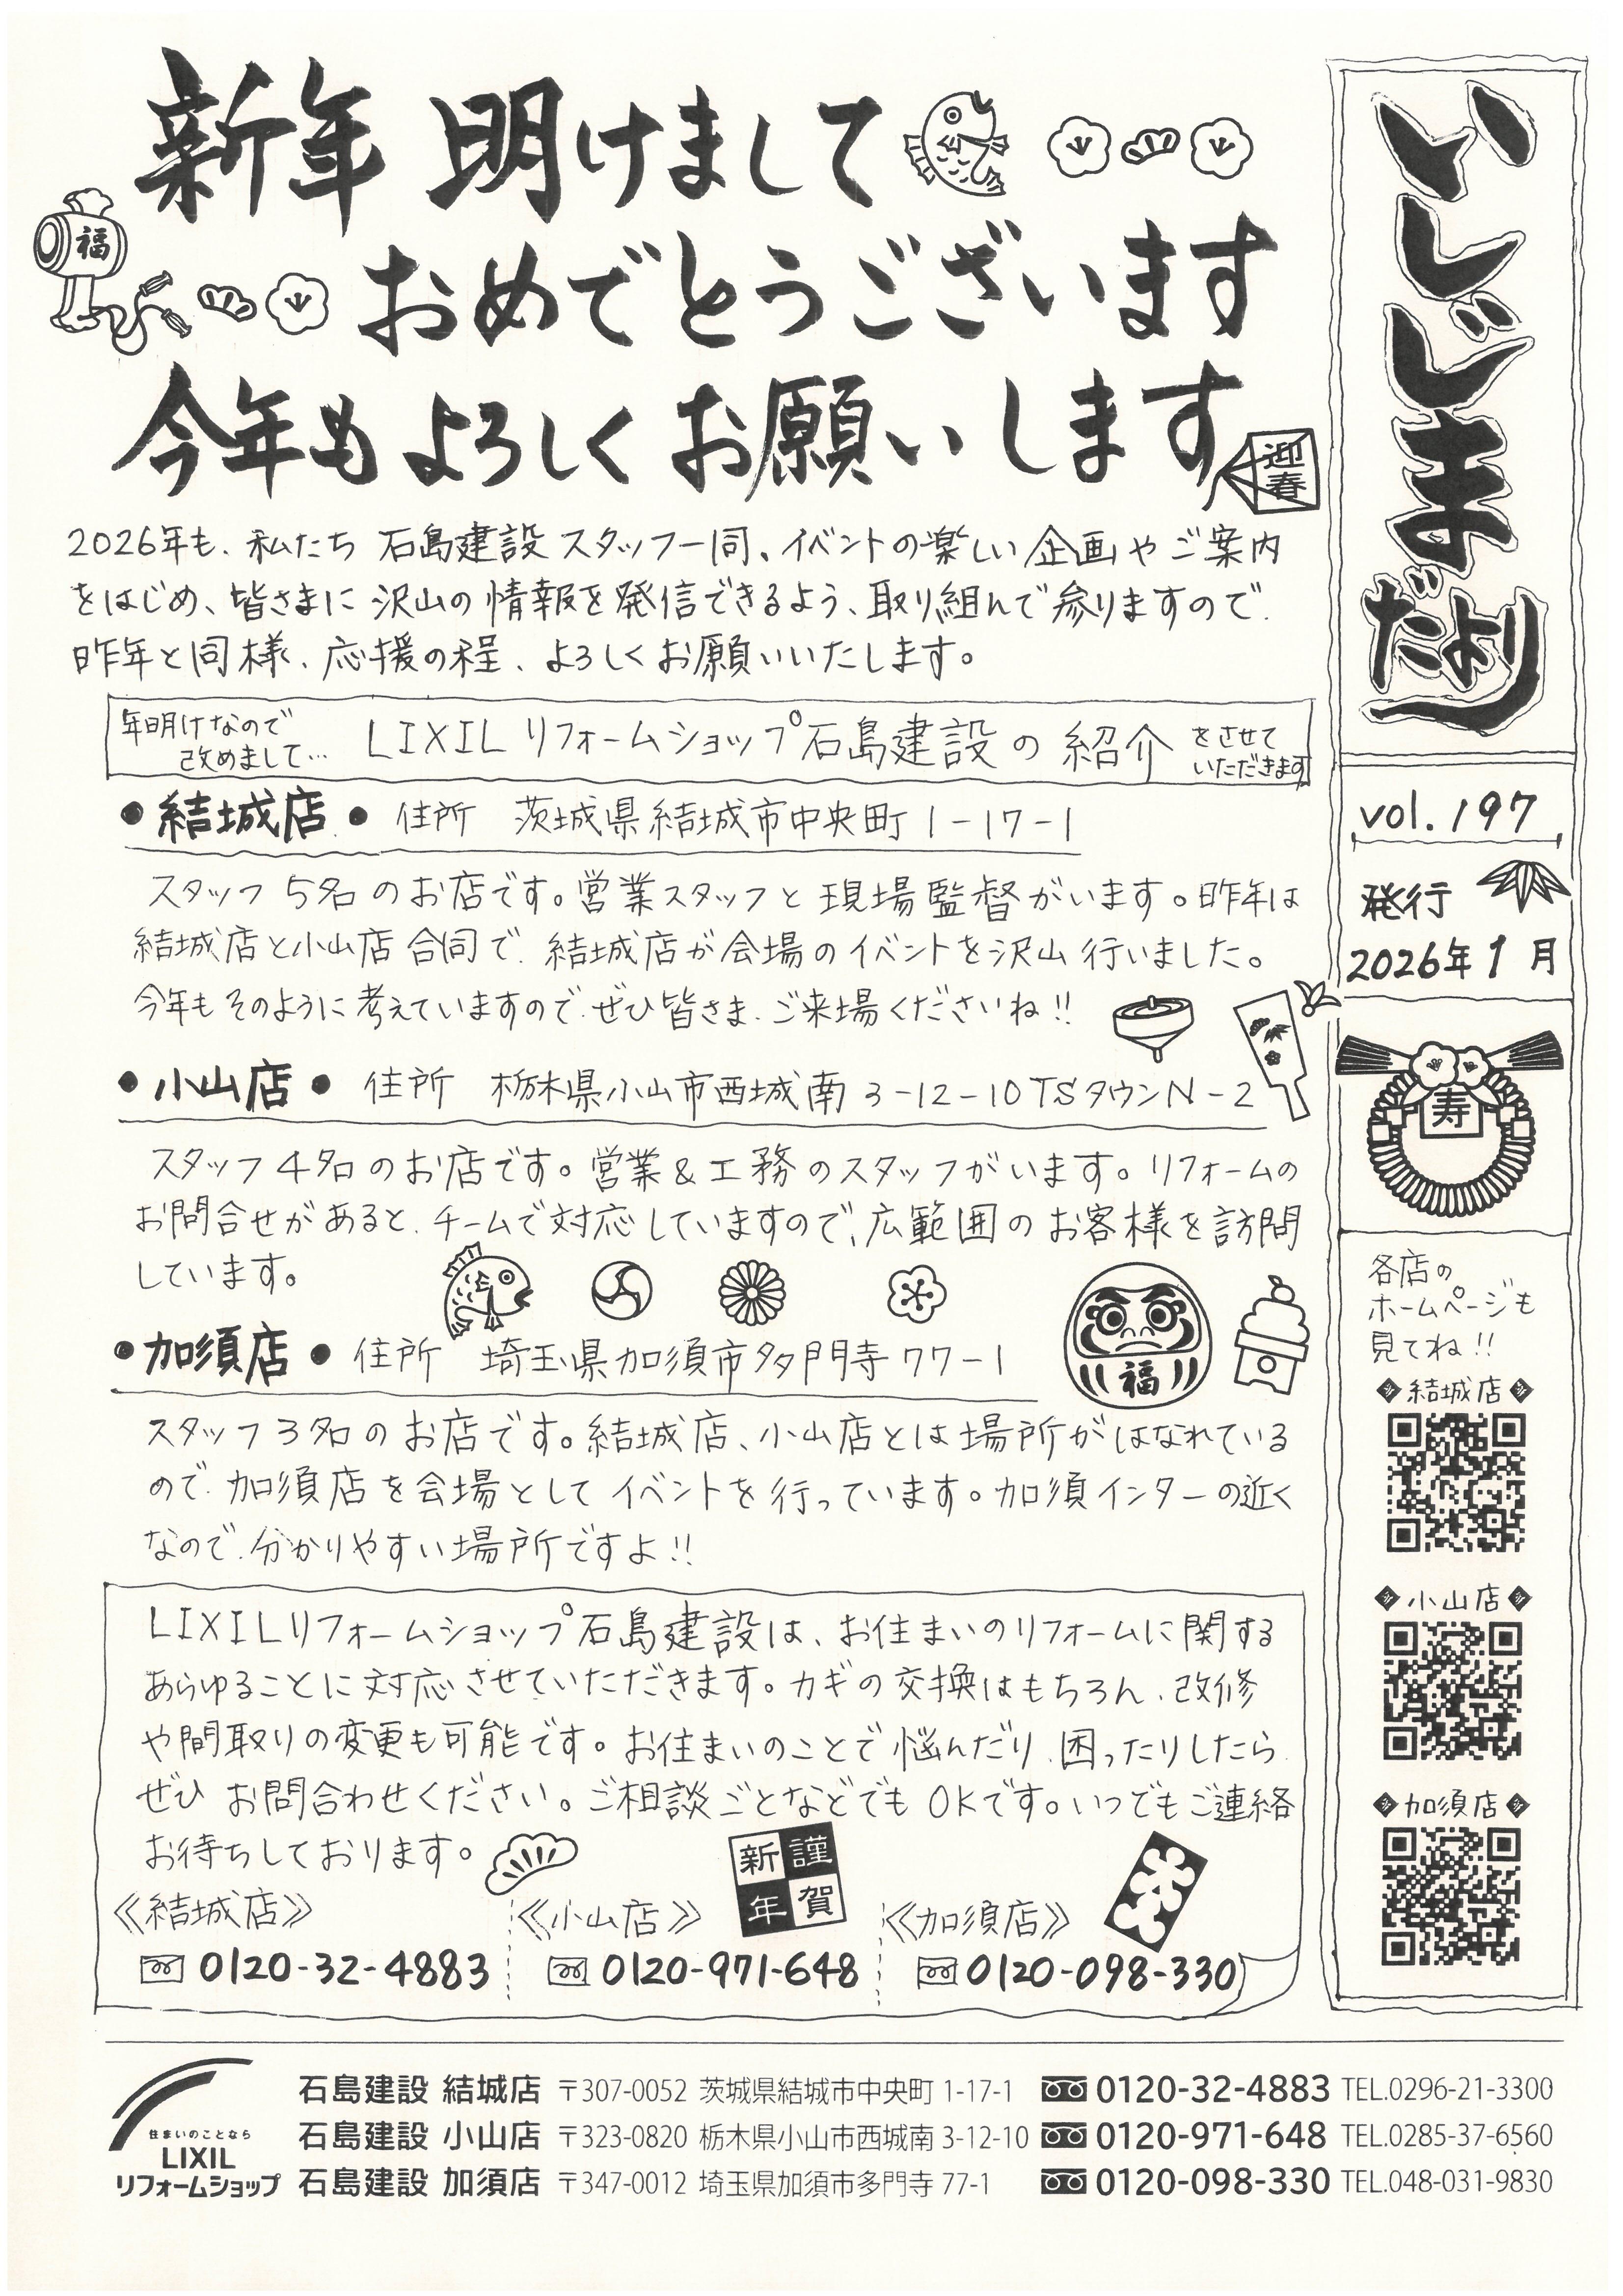 新年 明けまして
おめでとうございます
今年もよろしくお願いします
福
迎春
2026年も、私たち 石島建設スタッフ一同、イベントの楽しい企画やご案内
をはじめ、皆さまに沢山の情報を発信できるよう、取り組んで参りますので、
昨年と同様、応援の程、よろしくお願いいたします。
年明けなので
改めまして… LIXILリフォームショップ石島建設の紹介 をさせて
いただきます
●結城店● 住所 茨城県結城市中央町1-17-1
スタッフ5名のお店です。営業スタッフと現場監督がいます。昨年は
結城店と小山店合同で、結城店が会場のイベントを沢山行いました。
今年もそのように考えていますので、ぜひ皆さま、ご来場くださいね!!
●小山店● 住所 栃木県小山市西城南3-12-10TSタウンN-2
スタッフ4名のお店です。営業&工務のスタッフがいます。リフォームの
お問合せがあると、チームで対応していますので、広範囲のお客様を訪問
しています。
●加須店● 住所 埼玉県加須市多門寺77-1
福
スタッフ3名のお店です。結城店、小山店とは場所がはなれている
ので、加須店を会場としてイベントを行っています。加須インターの近く
なので、分かりやすい場所ですよ!!
LIXILリフォームショップ石島建設は、お住まいのリフォームに関する
あらゆることに対応させていただきます。カギの交換はもちろん、改修
や間取りの変更も可能です。お住まいのことで悩んだり、困ったりしたら、
ぜひ お問合わせください。ご相談ごとなどでもOKです。いつでもご連絡
お待ちしております。
謹賀新年
《結城店》 《小山店》 《加須店》
0120-32-4883 0120-971-648 0120-098-330
いしじまだより
vol.197
発行
2026年1月
寿
各店の
ホームページも
見てね!!
◆結城店◆
◆小山店◆
◆加須店◆
住まいのことなら
LIXIL
リフォームショップ
石島建設 結城店 〒307-0052 茨城県結城市中央町 1-17-1 0120-32-4883 TEL.0296-21-3300
石島建設 小山店 〒323-0820 栃木県小山市西城南 3-12-10 0120-971-648 TEL.0285-37-6560
石島建設 加須店 〒347-0012 埼玉県加須市多門寺 77-1 0120-098-330 TEL.048-031-9830